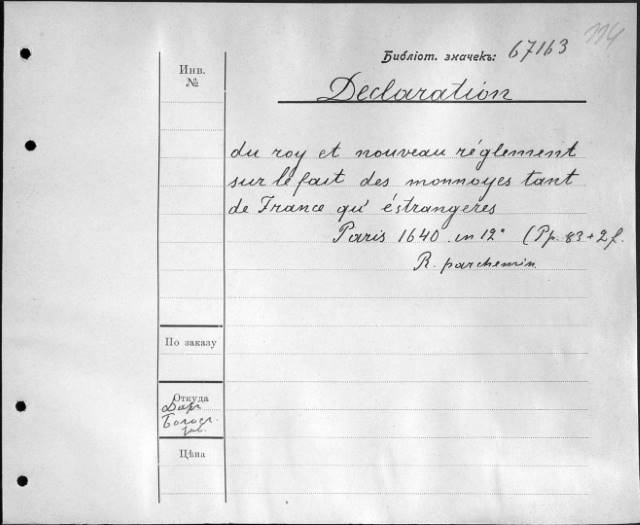 114
Библіот. значекъ: 67163
Инв.
№
Declaration
du roy et nouveau réglement
sur le fait des monnoyes tant
de France qu' éstrangeres
Paris 1640 in 12° (Pp. 83+2f.
R. parchemin.
По заказу
Откуда
Даръ
Цѣна